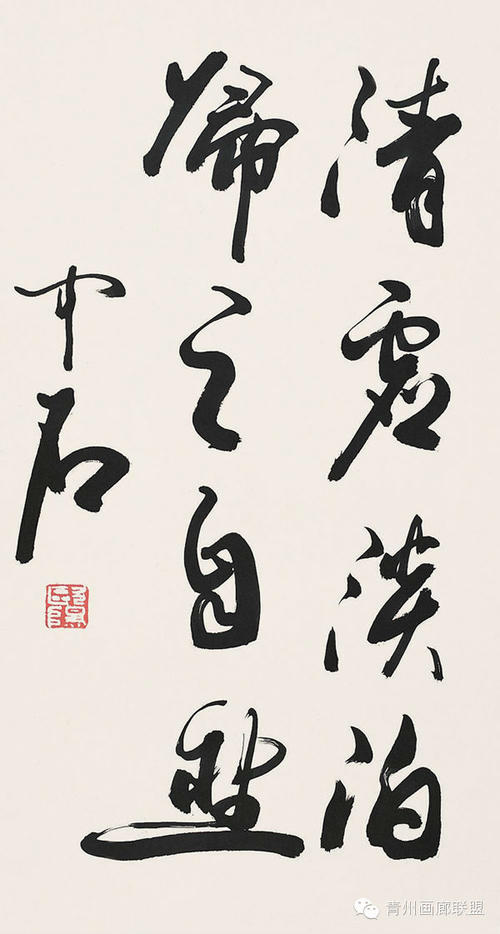 清虚淡泊
歸之自然
中石
青州画廊联盟